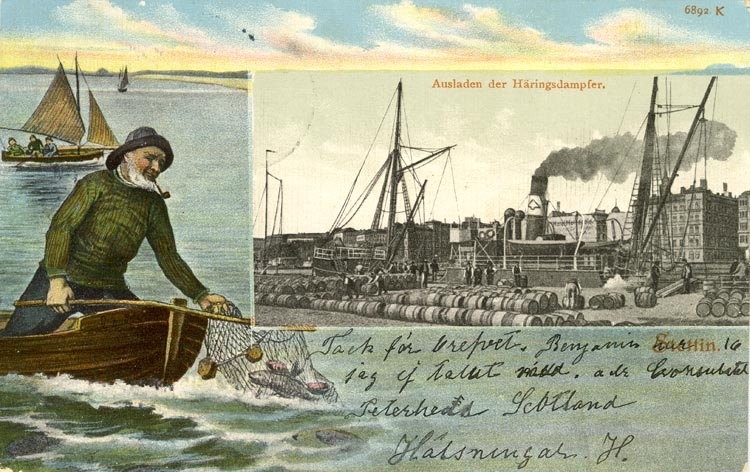 6892 K
Ausladen der Häringsdampfer.
Stettin.
Tack för brefvet. Benjamin har
jag ej talat med. adr Consulatet
Peterhead Scotland
Hälsningar. H.